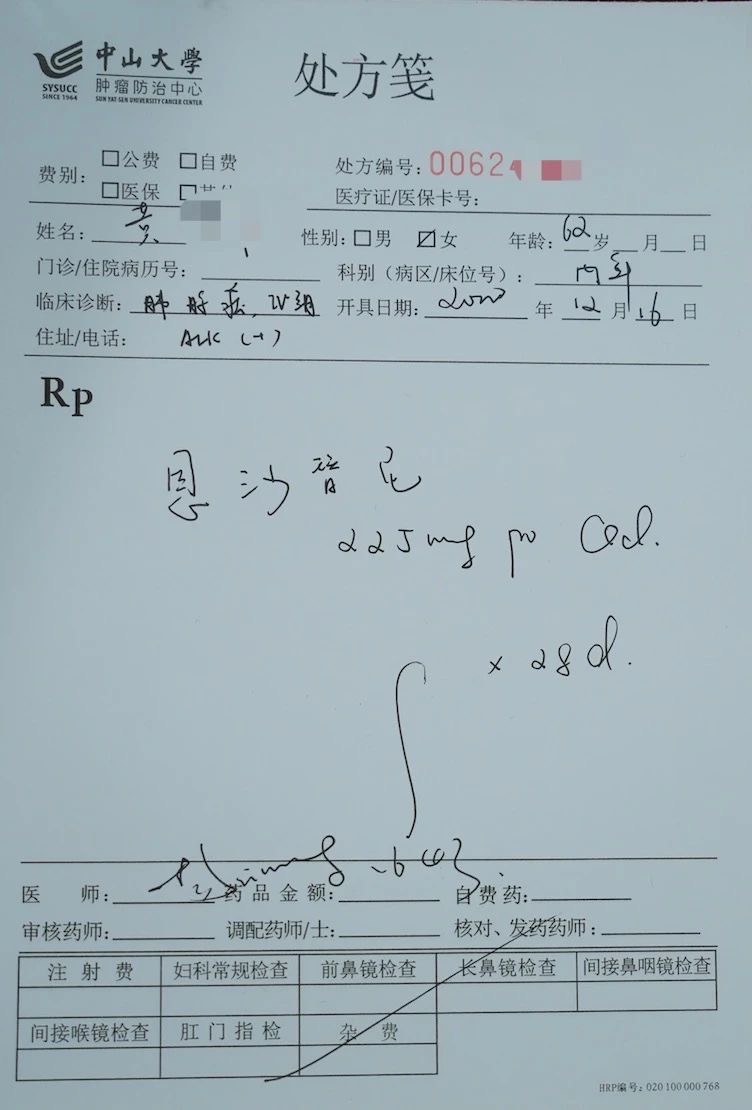 中山大學
肿瘤防治中心
SYSUCC
SINCE 1964
SUN YAT-SEN UNIVERSITY CANCER CENTER
处方笺
费别: □公费 □自费
□医保
处方编号: 0062
医疗证/医保卡号:
姓名: 黄 性别: □男 ☑女 年龄: 62岁 月 日
门诊/住院病历号: 科别（病区/床位号）: 内科
临床诊断: 肺腺癌, IV期 开具日期: 2020 年 12 月 16 日
住址/电话: ALK (+)
Rp
恩沙替尼
225mg po Qd.
× 28d.
医 师: 药品金额: 自费药:
审核药师: 调配药师/士: 核对、发药药师:
注射费 妇科常规检查 前鼻镜检查 长鼻镜检查 间接鼻咽镜检查
间接喉镜检查 肛门指检 杂 费
HRP编号: 020 100 000 768